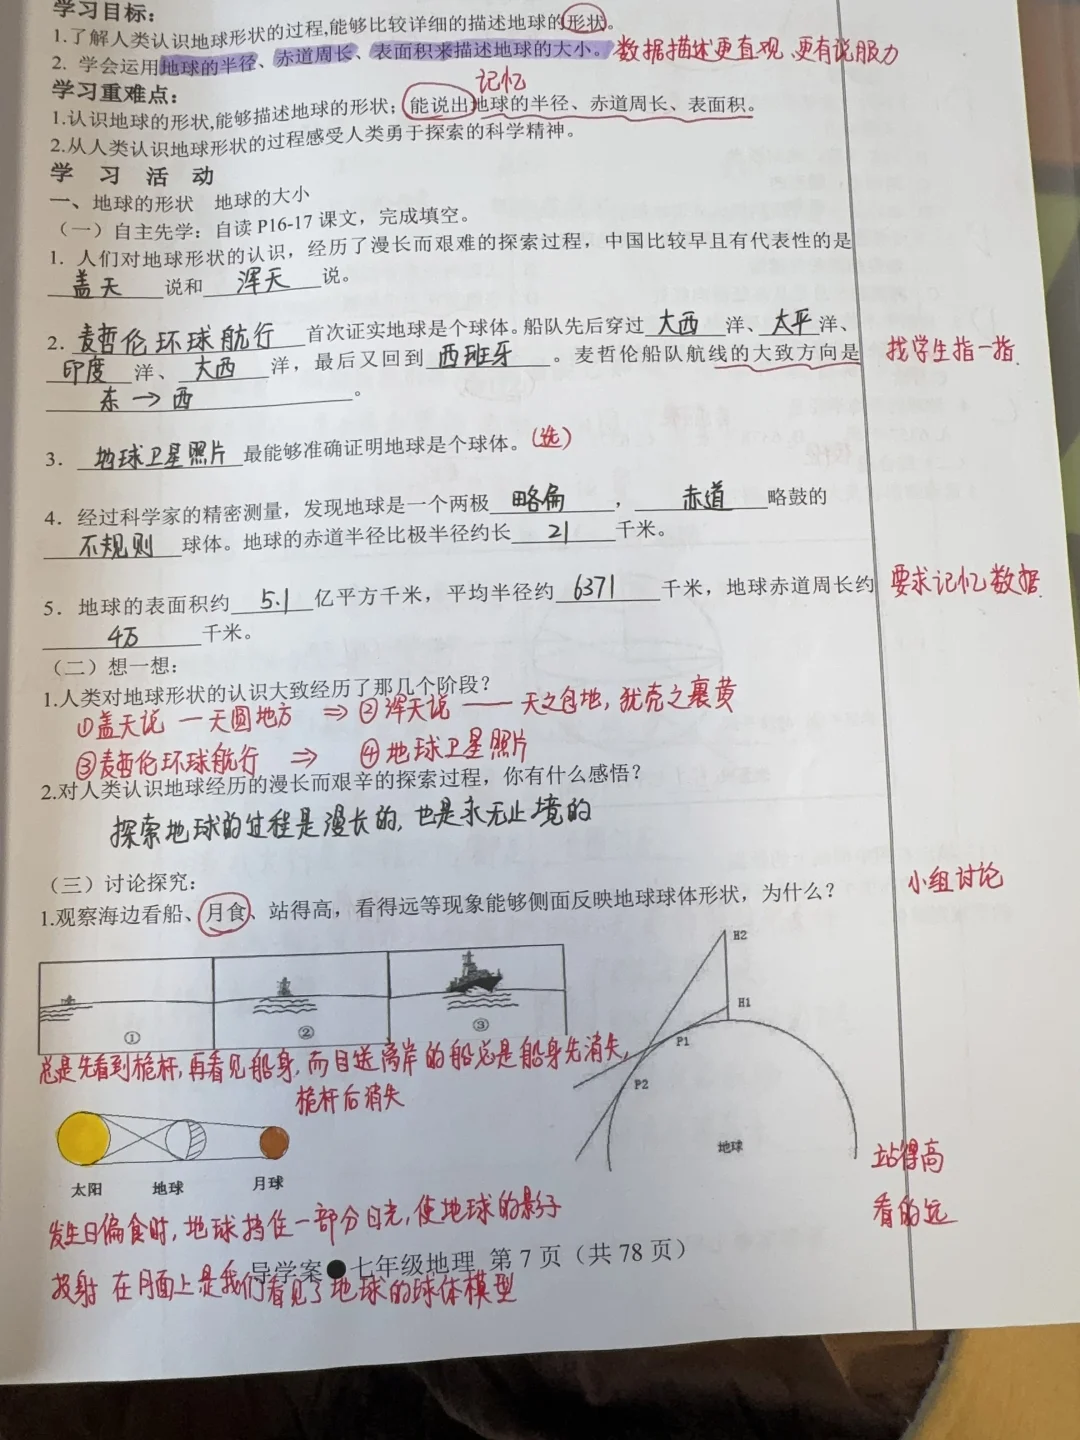 学习目标：
1.了解人类认识地球形状的过程,能够比较详细的描述地球的形状。
2. 学会运用地球的半径、赤道周长、表面积来描述地球的大小。 数据描述更直观、更有说服力
学习重难点： 记忆
1.认识地球的形状,能够描述地球的形状；能说出地球的半径、赤道周长、表面积。
2.从人类认识地球形状的过程感受人类勇于探索的科学精神。
学 习 活 动
一、地球的形状 地球的大小
（一）自主先学：自读 P16-17 课文，完成填空。
1. 人们对地球形状的认识，经历了漫长而艰难的探索过程，中国比较早且有代表性的是
盖天 说和 浑天 说。
2. 麦哲伦环球航行 首次证实地球是个球体。船队先后穿过 大西 洋、太平 洋、
印度 洋、 大西 洋，最后又回到 西班牙 。麦哲伦船队航线的大致方向是 找学生指一指.
东 → 西 。
3. 地球卫星照片 最能够准确证明地球是个球体。(选)
4. 经过科学家的精密测量，发现地球是一个两极 略扁 ， 赤道 略鼓的
不规则 球体。地球的赤道半径比极半径约长 21 千米。
5. 地球的表面积约 5.1 亿平方千米，平均半径约 6371 千米，地球赤道周长约 要求记忆数据.
4万 千米。
（二）想一想：
1.人类对地球形状的认识大致经历了那几个阶段？
①盖天说 — 天圆地方 ⇒ ②浑天说 —— 天之包地, 犹壳之裹黄
③麦哲伦环球航行 ⇒ ④地球卫星照片
2.对人类认识地球经历的漫长而艰辛的探索过程，你有什么感悟？
探索地球的过程是漫长的, 也是永无止境的
（三）讨论探究： 小组讨论
1.观察海边看船、月食、站得高，看得远等现象能够侧面反映地球球体形状，为什么？
H2
H1
① ② ③
P1
总是先看到桅杆, 再看见船身, 而目送离岸的船总是船身先消失,
P2
桅杆后消失
地球
太阳 地球 月球
站得高
看的远
发生日偏食时, 地球挡住一部分日光, 使地球的影子
导学案●七年级地理 第 7 页（共 78 页）
投射 在月面上是我们看见了地球的球体模型